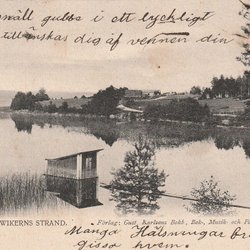 snäll gubbe i ett lyckligt
tillönskas dig af vennen din
WIKERNS STRAND.
Förlag: Gust. Karlsons Bokh., Bok-, Musik- och Pa
Många Hälsningar
gissa hvem.